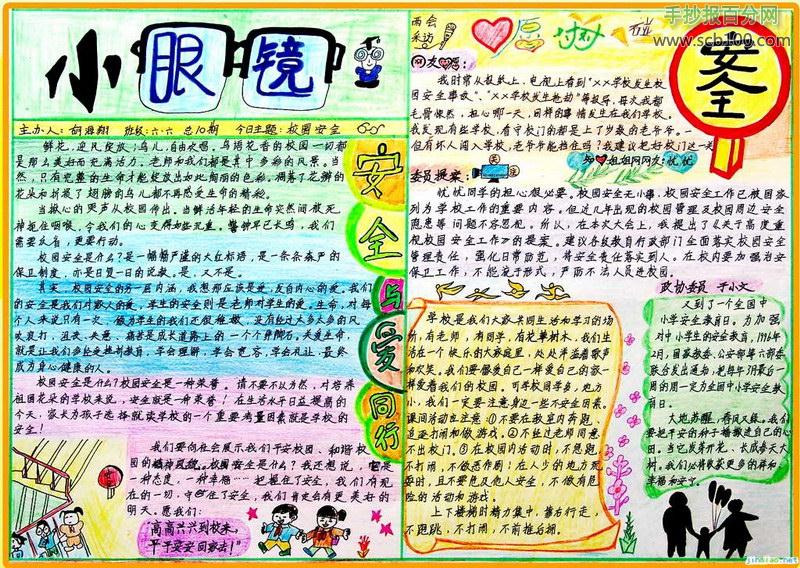 手抄报百分网
www.scb100.com
小眼镜
主办人：胡海翔 班级：六·六 总10期 今日主题：校园安全
鲜花，迎风绽放；鸟儿，自由欢唱。鸟语花香的校园一切都
是那么美好而充满活力。老师和我们都是其中多彩的风景。当
然，只有完整的生命才能绽放出如此绚丽的色彩，凋落了花瓣的
花朵和折损了翅膀的鸟儿都不再感受生命的精彩。
当揪心的哭声从校园传出，当鲜活年轻的生命突然间被死
神扼住咽喉，令我们的心变得如些沉重。警钟早已长鸣，我们
需要永省，更要行动。
校园安全是什么？是一幅幅严谨的大红标语，是一条条严户的
保卫制度，亦是日复一日的说教。是，又不是。
其实，校园安全的另一层内涵，我想那应该是爱，发自内心的爱。我们
的安全是我们对家人的爱，学生的安全则是老师对学生的爱。生命，对每
个人来说只有一次，
就是让我们多接受挫折教育，学会理解，学会宽容，学会礼让，最终
成为身心健康的人。
校园安全是什么？校园安全是一种荣誉。请不要不以为然，对培养
祖国花朵的学校来说，安全就是一种荣誉！在生活水平日益提高的
今天，家长为孩子选择就读学校的一个重要考量因素就是学校的
安全！
我们要向社会展示我们平安校园、和谐校
园的精神风貌。校园安全是什么？我还想说，它是
一种态度，一种幸福……把握住了安全，我们有现
在的一切，守住了安全，我们肯定会有更美好的
明天。愿我们：
“高高兴兴到校来，
平平安安回家去！”
安全与爱同行
两会
采访
愿
安全
网友
我时常从报纸上，电视上看到“××学校发生校
园安全事故”、“××学校发生抢劫”等报导，每次我都
毛骨悚然，担心哪一天，同样的事情发生在我们学校。
我发现有些学校，看守校门的都是上了岁数的老爷爷，一
但有坏人闯入学校，老爷爷能担住吗？我建议把好校门这一关
知心姐姐网网友：忧忧
委员提案：
忧忧同学的担心很必要。校园安全无小事，校园安全工作已被国家
列为学校工作的重要内容。但近几年出现的校园管理及校园周边安全
隐患等问题不容忽视。所以，在本次大会上，我提出了《关于高度重
视校园安全工作》的提案。建议各级教育行政部门全面落实校园安全
管理责任，强化日常防范，将安全责任落实到人。在校内要加强治安
保卫工作，不能流于形式，严防不法人员进校园。
政协委员 于小文
学校是我们大家共同生活和学习的场
所，有老师，有同学，有花草树木，我们生
活在一个快乐的大家庭里，处处洋溢着歌声
和欢笑。我们要像爱自己一样爱自己的家一
样爱着我们的校园。可学校同学多，地方
小，我们一定要注意身边一些不安全因素。
课间活动应注意：①不要在教室内奔跑、
追逐打闹和做游戏。②不经过老师同意
不出校门。③在校园内活动时，不恶跑，
不打闹，不做恶作剧；在人少的地方玩
耍时，且不要危及他人安全，不做有危
险的活动和游戏。
上下楼梯时精力集中，靠右行走，
不跑跳，不打闹，不前推后拥。
又到了全国中
小学安全教育日。为加强
对中小学生的安全教育，1996年
2月，国家教委、公安部等六部委
联合发出通知，把每年3月最后一
周的周一定为全国中小学安全教
育日。
大地苏醒，春风又绿。我们
要把平安的种子播撒进自己的心
田。当它发芽开花，长成参天大
树，我们必将收获更多的祥和
幸福和安宁。
jinbiao.net